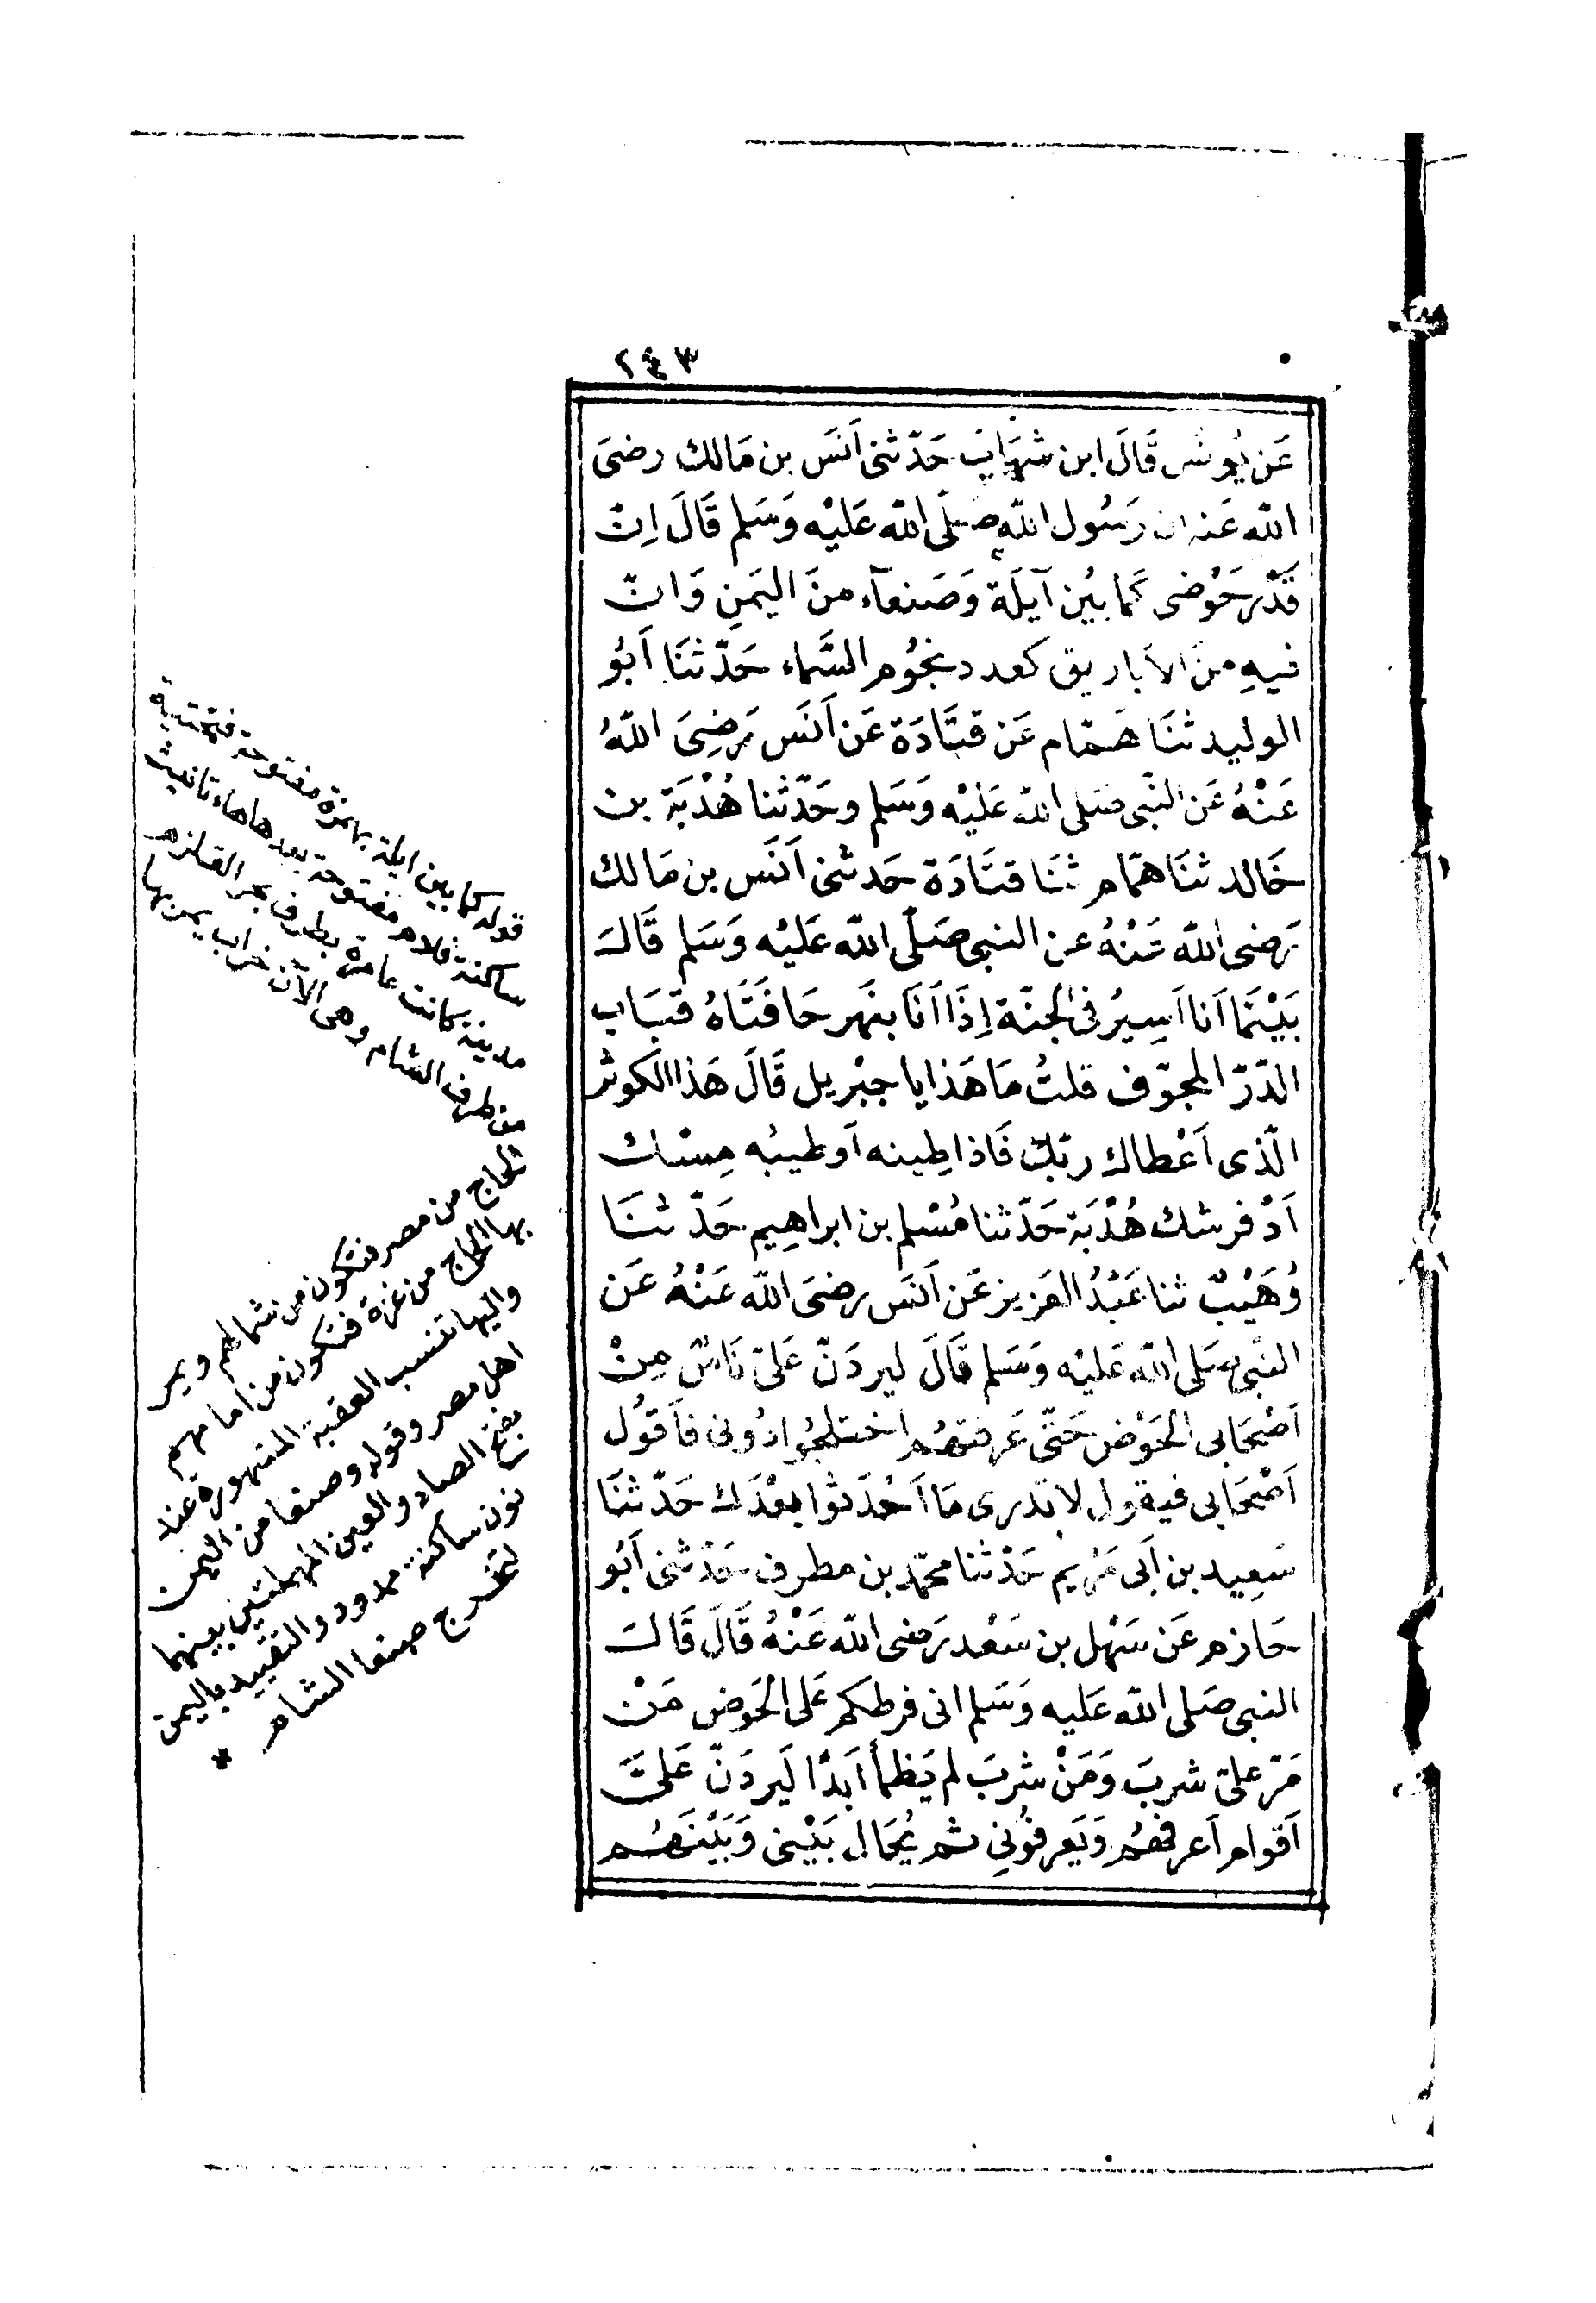 ٢٤٣
عَن يُونس قَالَ ابن شهَاب حَدّثنى اَنَس بن مَالك رضىَ
الله عَنه ان رَسُول الله صَلّى الله عَليْه وَسَلم قَالَ اِنّ
قَدْرَ حَوْضى كَما بَيْن اَيلَة وَصَنعآء منَ اليَمَنِ وَانّ
فيهِ منَ الاَباريق كعدد نجُوُم السَّماء حَدّثنَا اَبُو
الوليد ثنَا هَمّام عَن قتَادَة عَن اَنَس رَضِىَ اللهُ
عَنْهُ عَن النّبى صَلى الله عَليْه وَسَلم وحَدّثنا هُدْبَة بن
خَالد ثنَا همّام ثنَا قتَادَة حَدثنى اَنَس بن مَالك
رَضى الله عَنْهُ عن النبى صَلّى الله عَليْه وَسَلم قَالَ
بَيْنَمَا اَنا اَسِيرُ فى الجنّة اِذَا اَنَا بنَهر حَافَتَاهُ قبَاب
الدّرّ المجوّف قلتُ مَا هَذا يا جبْريل قَالَ هَذا الكوثر
الّذى اَعْطاك ربّك فَاذا طِينه اَو طيبُه مِسْك
اَذْفر شك هُدْبَة حَدّثنا مُسْلم بن ابراهِيم حَدّثنَا
وُهَيْبٌ ثنا عَبْدُ العَزيز عَن اَنَس رضىَ الله عَنْهُ عَن
النبى صَلى الله عَليْه وَسَلم قَالَ ليردَنّ عَلىّ نَاسٌ مِنْ
اَصْحَابى الحَوْض حَتّى عَرفتهُم اختلجُوا دُونى فاَقوُل
اَصْحَابى فيقول لا تدرى مَا اَحْدَثوا بعْدَك حَدّثنَا
سَعِيد بن اَبى مَرْيم حَدّثنا محمّد بن مطرف حَدّثنى اَبُو
حَازم عَن سَهْل بن سَعْد رَضى الله عَنْهُ قَالَ قَالَ
النبى صَلى الله عَليه وَسَلم انى فرطكم عَلى الحَوض مَنْ
مَرّ علىّ شربَ وَمَنْ شربَ لم يَظمأ اَبَدًا لَيردَنّ عَلىَّ
اَقوام اَعرفهُم وَيَعرفُونِى ثم يُحَال بَيْنى وَبَيْنَهُم
قوله كما بين ايلة بهمزة مفتوحة فتحتية
ساكنة فلام مفتوحة بعدها هاء تانيث
مدينة كانت عامرة بطرف بحر القلزم
من طرف الشام وهى الآن خراب يمر بها
الحاج من مصر فتكون من شمالهم ويمر
بها الحاج من غزة فتكون من امامهم
واليها تنسب العقبة المشهورة عند
اهل مصر وقوله وصنعا من اليمن
بفتح الصاد والعين المهملتين بينهما
نون ساكنة ممدود والتقييد باليمن
لتخرج صنعا الشام *